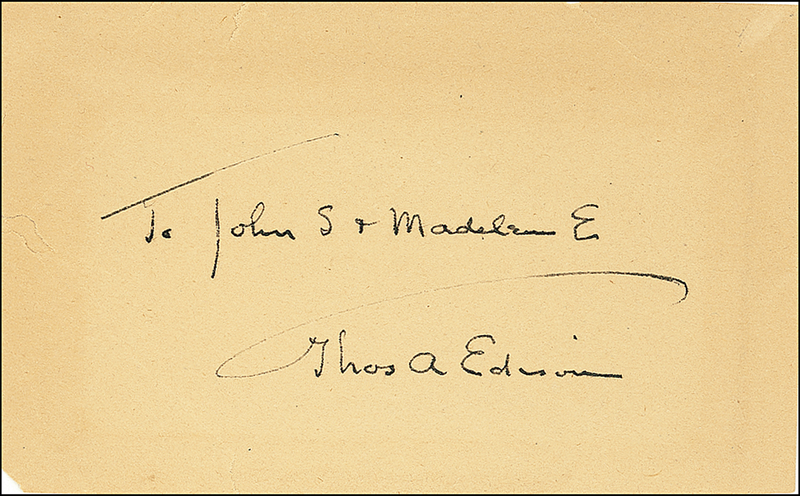 To John S + Madeleine E
Thos A Edison